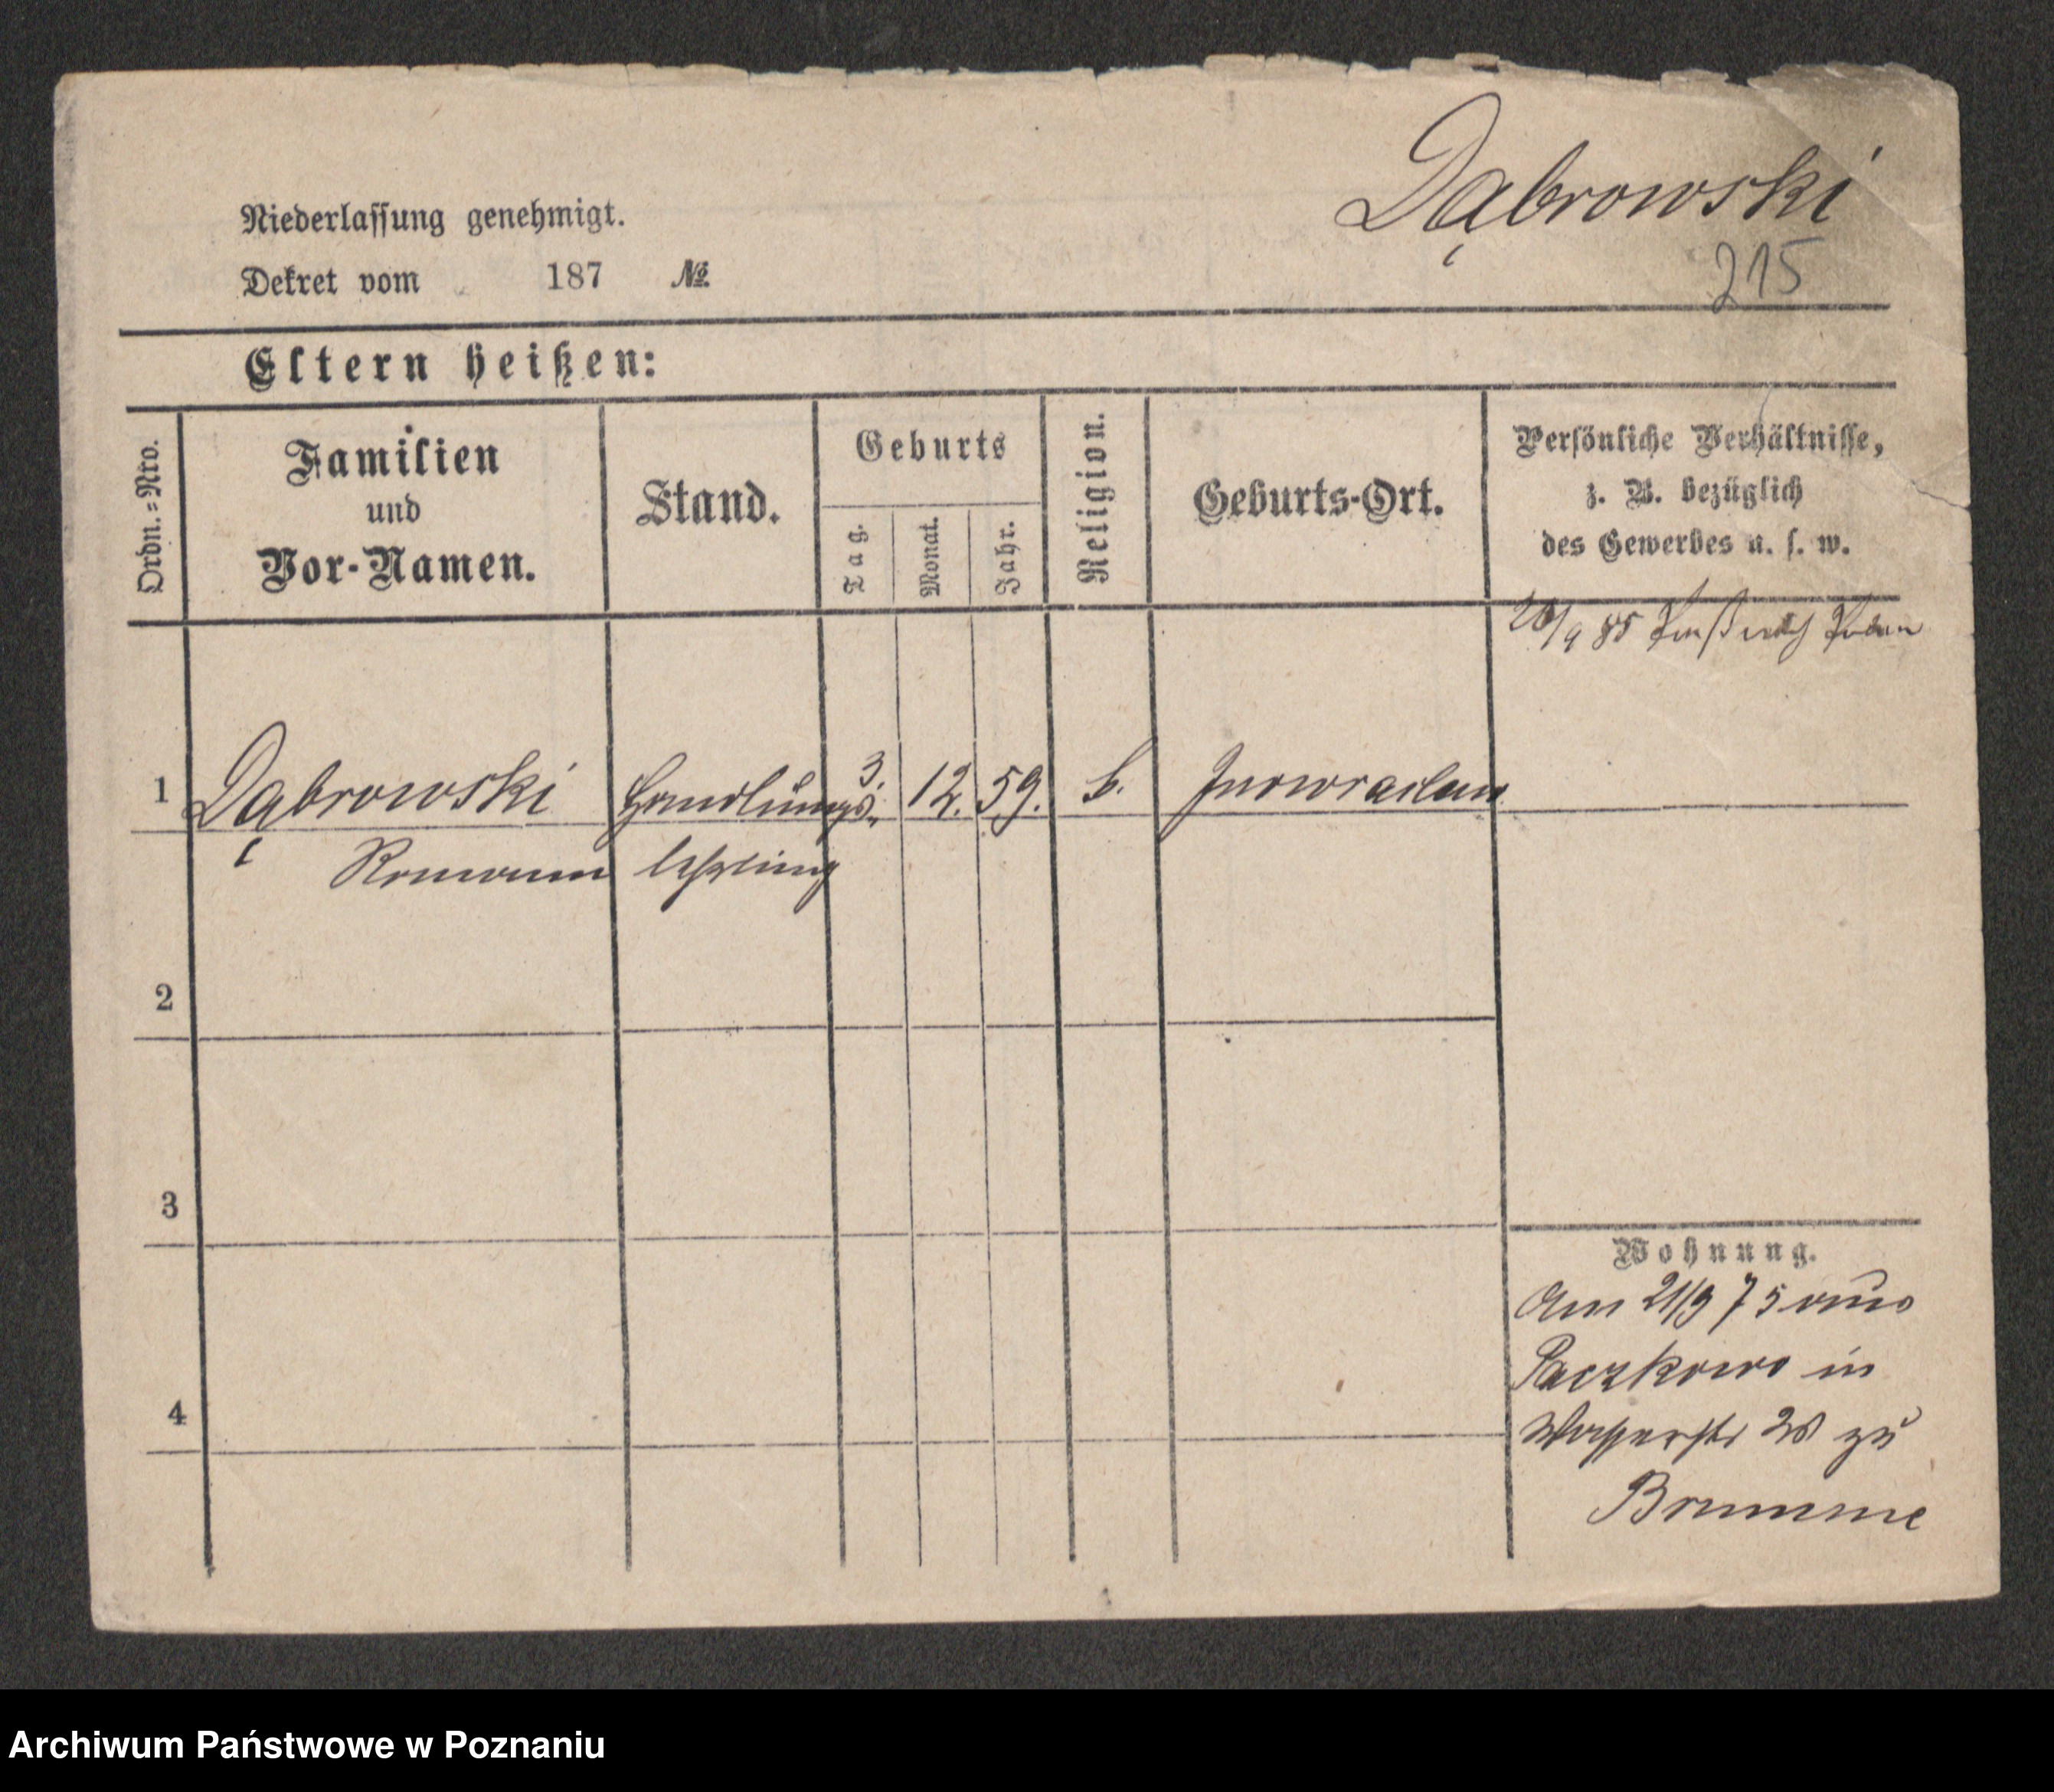 Dąbrowski
215
Niederlassung genehmigt.
Dekret vom 187 №
Eltern heißen:
Ordn.-Nro.
Familien
und
Vor-Namen.
Stand.
Geburts
Tag.
Monat.
Jahr.
Religion.
Geburts-Ort.
Persönliche Verhältnisse,
z. B. bezüglich
des Gewerbes u. s. w.
/9 85 nach
1 Dąbrowski Handlungs- 3. 12. 59. k. Inowraclaw
Roman lehrling
2
3
4
Wohnung.
Am 21/9 75 aus
Paczkowo in
Wasserstr 28 zu
Brumme
Archiwum Państwowe w Poznaniu